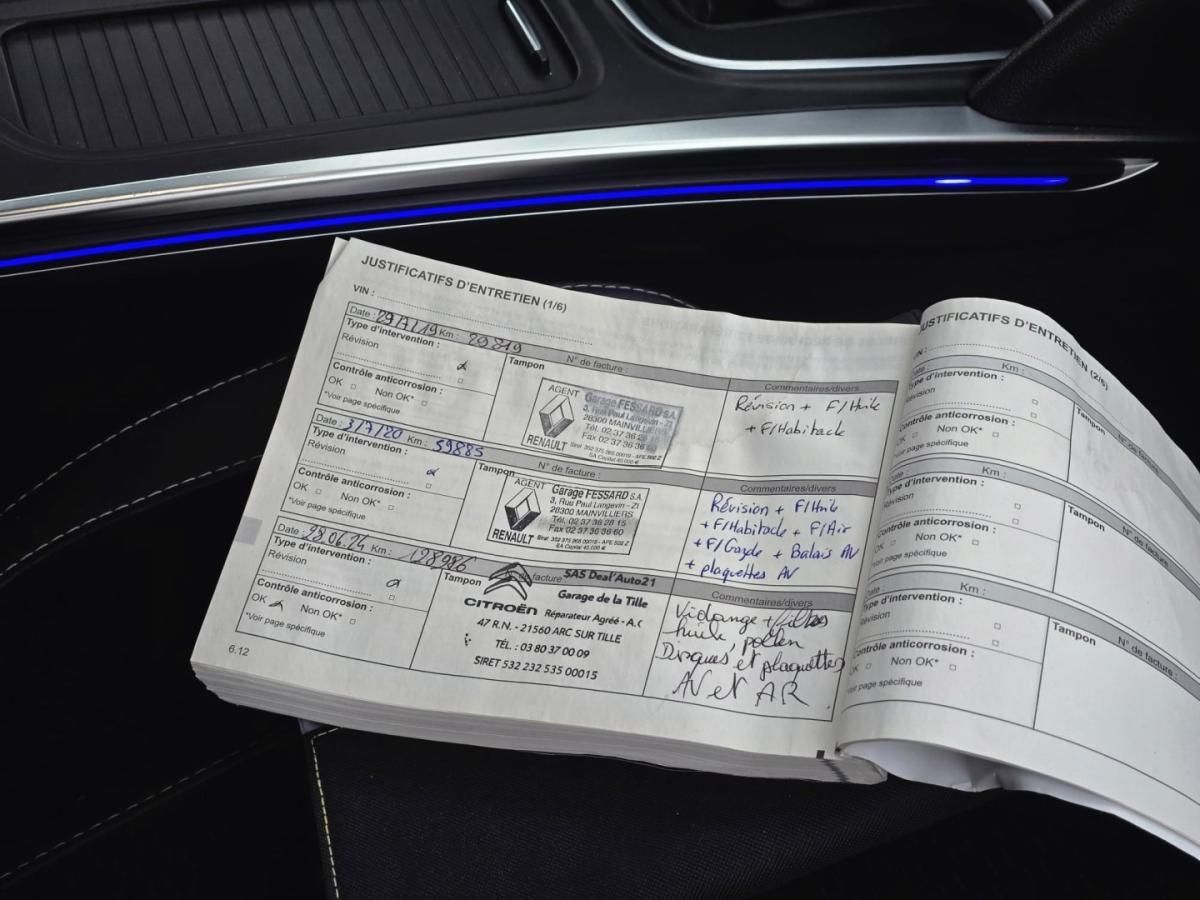 JUSTIFICATIFS D'ENTRETIEN (1/6)
VIN :
Date : 29/7/19 Km : 29819
Type d'intervention :
Révision
Contrôle anticorrosion :
OK Non OK*
*Voir page spécifique
Tampon N° de facture :
AGENT
RENAULT
Garage FESSARD S.A.
3, Rue Paul Langevin - ZI
28300 MAINVILLIERS
Tél. 02 37 36 28 15
Fax 02 37 36 36 60
Commentaires/divers
Révision + F/Huile
+ F/Habitacle
Date : 3/7/20 Km : 59885
Type d'intervention :
Révision
Contrôle anticorrosion :
OK Non OK*
*Voir page spécifique
Tampon N° de facture :
AGENT
RENAULT
Garage FESSARD S.A.
3, Rue Paul Langevin - ZI
28300 MAINVILLIERS
Tél. 02 37 36 28 15
Fax 02 37 36 36 60
Commentaires/divers
Révision + F/Huile
+ F/Habitacle + F/Air
+ F/Gazole + Balais AV
+ plaquettes AV
Date : 28.06.24 Km : 128986
Type d'intervention :
Révision
Contrôle anticorrosion :
OK Non OK*
*Voir page spécifique
Tampon de facture
SAS Deal'Auto21
Garage de la Tille
CITROËN Réparateur Agréé - A.C
47 R.N. - 21560 ARC SUR TILLE
TÉL. : 03 80 37 00 09
SIRET 532 232 535 00015
Commentaires/divers
Vidange + filtres
huile, pollen
Disques et plaquettes
AV et AR
6.12
JUSTIFICATIFS D'ENTRETIEN (2/6)
Date : Km :
Type d'intervention :
Révision
Contrôle anticorrosion :
OK Non OK*
*Voir page spécifique
Tampon N° de facture
Km :
Type d'intervention :
Révision
Contrôle anticorrosion :
OK Non OK*
*Voir page spécifique
Tampon N° de facture :
Date : Km :
Type d'intervention :
Révision
Contrôle anticorrosion :
OK Non OK*
*Voir page spécifique
Tampon N° de facture :